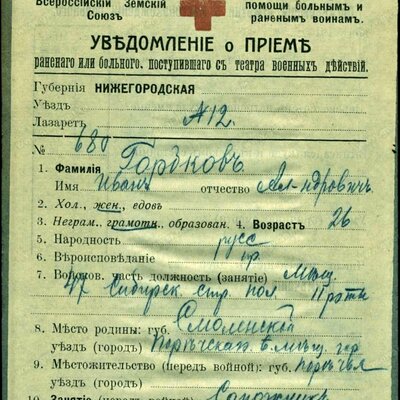 Всероссійскій Земскій
Союзъ
помощи больнымъ и
раненымъ воинамъ.
УВѢДОМЛЕНІЕ о ПРІЕМѢ
раненаго или больного, поступившаго съ театра военныхъ дѣйствій.
Губернія НИЖЕГОРОДСКАЯ
Уѣздъ
Лазаретъ №12.
№ 680
1. Фамилія Горбковъ
Имя Иванъ отчество Ал-ндровичъ
2. Хол., жен., вдовъ
3. Неграм., грамотн., образован. 4. Возрастъ 26
5. Народность русс
6. Вѣроисповѣданіе пр
7. Войсков. часть должность (занятіе)
47 Сибирск. стр. пол
8. Мѣсто родины: губ. Смоленской
уѣздъ (городъ)
9. Мѣстожительство (передъ войной): губ.
уѣздъ (городъ)
10. Занятіе (передъ войной) Сапожникъ